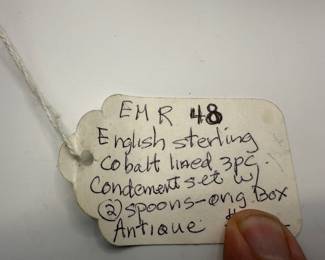 EMR 48
English sterling
Cobalt lined 3pc.
Condement set w/
② spoons-ong Box
Antique